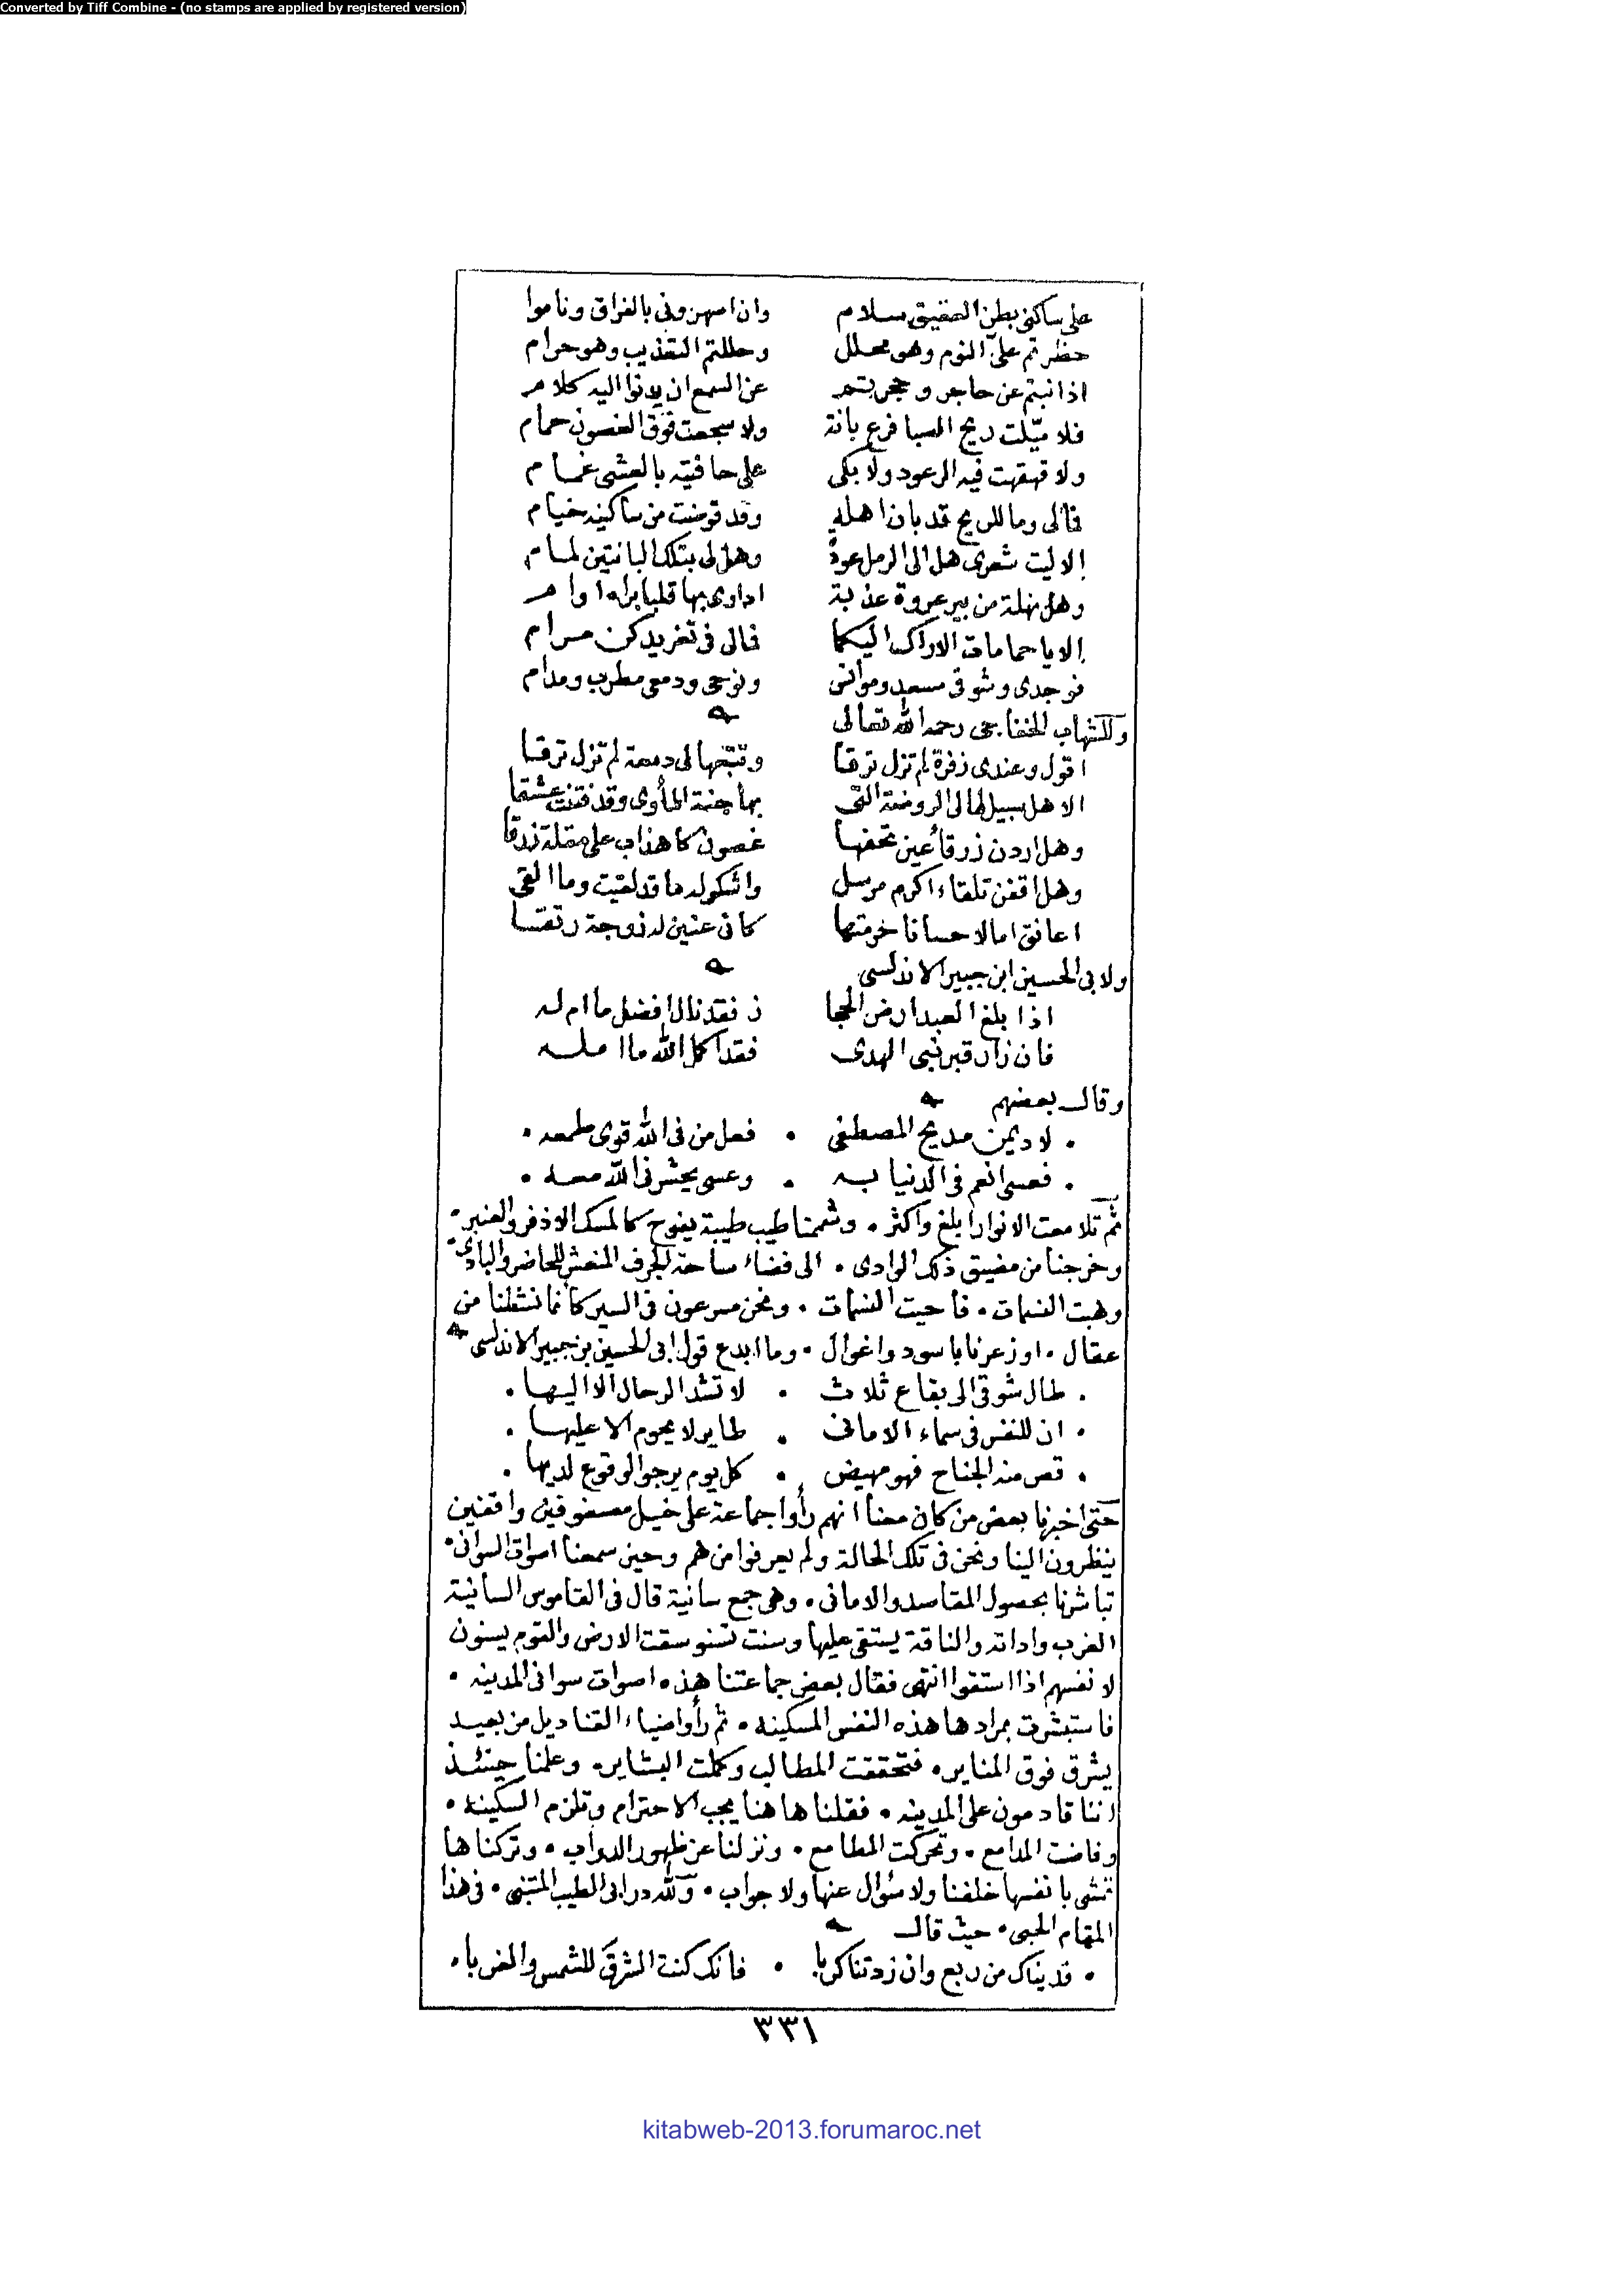 Converted by Tiff Combine - (no stamps are applied by registered version)
على ساكنى بطن العقيق سلام وان اسهرونى بالفراق وناموا
حظرتم علىّ النوم وهو محلل وحللتم التعذيب وهو حرام
اذا نبتم عن حاجر وحجرتم عن السمع ان يدنوا اليه كلام
فلا ميّلت ريح الصبا فرع بانة ولا سجعت فوق الغصون حمام
ولا قهقهت فيه الرعود ولا بكى على حافتيه بالعشى غمام
فمالى وما للربع قد بان اهله وقد قوضت من ساكنيه خيام
الا ليت شعرى هل الى الرمل عودة وهل لى بتلك البانتين لمام
وهل نهلة من بير عروة عذبة اداوى بها قلبا براه اوام
الا يا حمامات الاراك اليكما فمالى فى تغريدكن مرام
فوجدى وشوقى مسعد وموانس ونوحى ودمعى مطرب ومدام
وللشهاب الخفاجى رحمه الله تعالى
اقول وعندى زفرة لم تزل ترقا وتتبعها لى دمعة لم تزل ترقا
الا هل سبيل لى الى الروضة التى بها جنة المأوى وقد فتنت عشقا
وهل اردن زرقاء عين تحفها غصون كاهداب على مقلة زرقا
وهل اقفن تلقاء اكرم مرسل واشكو له ما قد لقيت وما القى
اعانق امالا حسانا خرمتها كانى عنين له زوجة رتقا
ولابى الحسين ابن جبير الاندلسى
اذا بلغ العبد ارض الحجا ز فقد نال افضل ما ام له
فان زار قبر نبى الهدى فقد اكمل الله ما امله
وقال بعضهم
• لا ديمن مديح المصطفى • فعل من فى الله قوى طمعه •
• فعسى انعم فى الدنيا به • وعسى يحشرنى الله معه •
ثم تلامعت الانوار ابلغ واكثر • وشممنا طيب طيبة يفوح كالمسك الاذفر والعنبر •
وخرجنا من مضيق ذلك الوادى • الى فضاء ساحة الجرف المنعش للحاضر والبادى •
وهبت النسمات • فاحيت النسمات • ونحن مسرعون فى السير كأنما نشطنا من
عقال • او زعرنا باسود واغوال • وما ابدع قول ابى الحسين بن جبير الاندلسى
• طال شوقى الى بقاع ثلاث • لا تشد الرحال الا اليها •
• ان للنفس فى سماء الامانى • طاير لا يحوم الا عليها •
• قص منه الجناح فهو مهيض • كل يوم يرجو الوقوع لديها •
حتى اخبرنا بعض من كان معنا انهم رأوا جماعة على خيل مصفوفين واقفين
ينظرون الينا ونحن فى تلك الحالة ولم يعرفوا من هم وحين سمعنا اصوات السوانى •
تباشرنا بحصول المقاصد والامانى • وهى جمع سانية قال فى القاموس السانية
الغرب واداته والناقة يستقى عليها وسنت تسنو سقت الارض والقوم يسنون
لانفسهم اذا استقوا انتهى فقال بعض جماعتنا هذه اصوات سوانى المدينه •
فاستبشرت بمرادها هذه النفس المسكينه • ثم رأوا ضياء القناديل من بعيد
يشرق فوق المناير • فتحققت المطالب وكملت البشاير • وعلمنا حينئذ
اننا قادمون على المدينه • فقلنا هاهنا يجب الاحترام وتلزم السكينه •
وفاضت المدامع • وتحركت المطامع • ونزلنا عن ظهور الدواب • وتركناها
تمشى بانفسها خلفنا ولا سؤال عنها ولا جواب • ولله در ابى الطيب المتنبى • فى هذا
المقام الحبى • حيث قال
• فديناك من ربع وان زدتنا كربا • فانك كنت الشرق للشمس والغربا •
٣٣١
kitabweb-2013.forumaroc.net